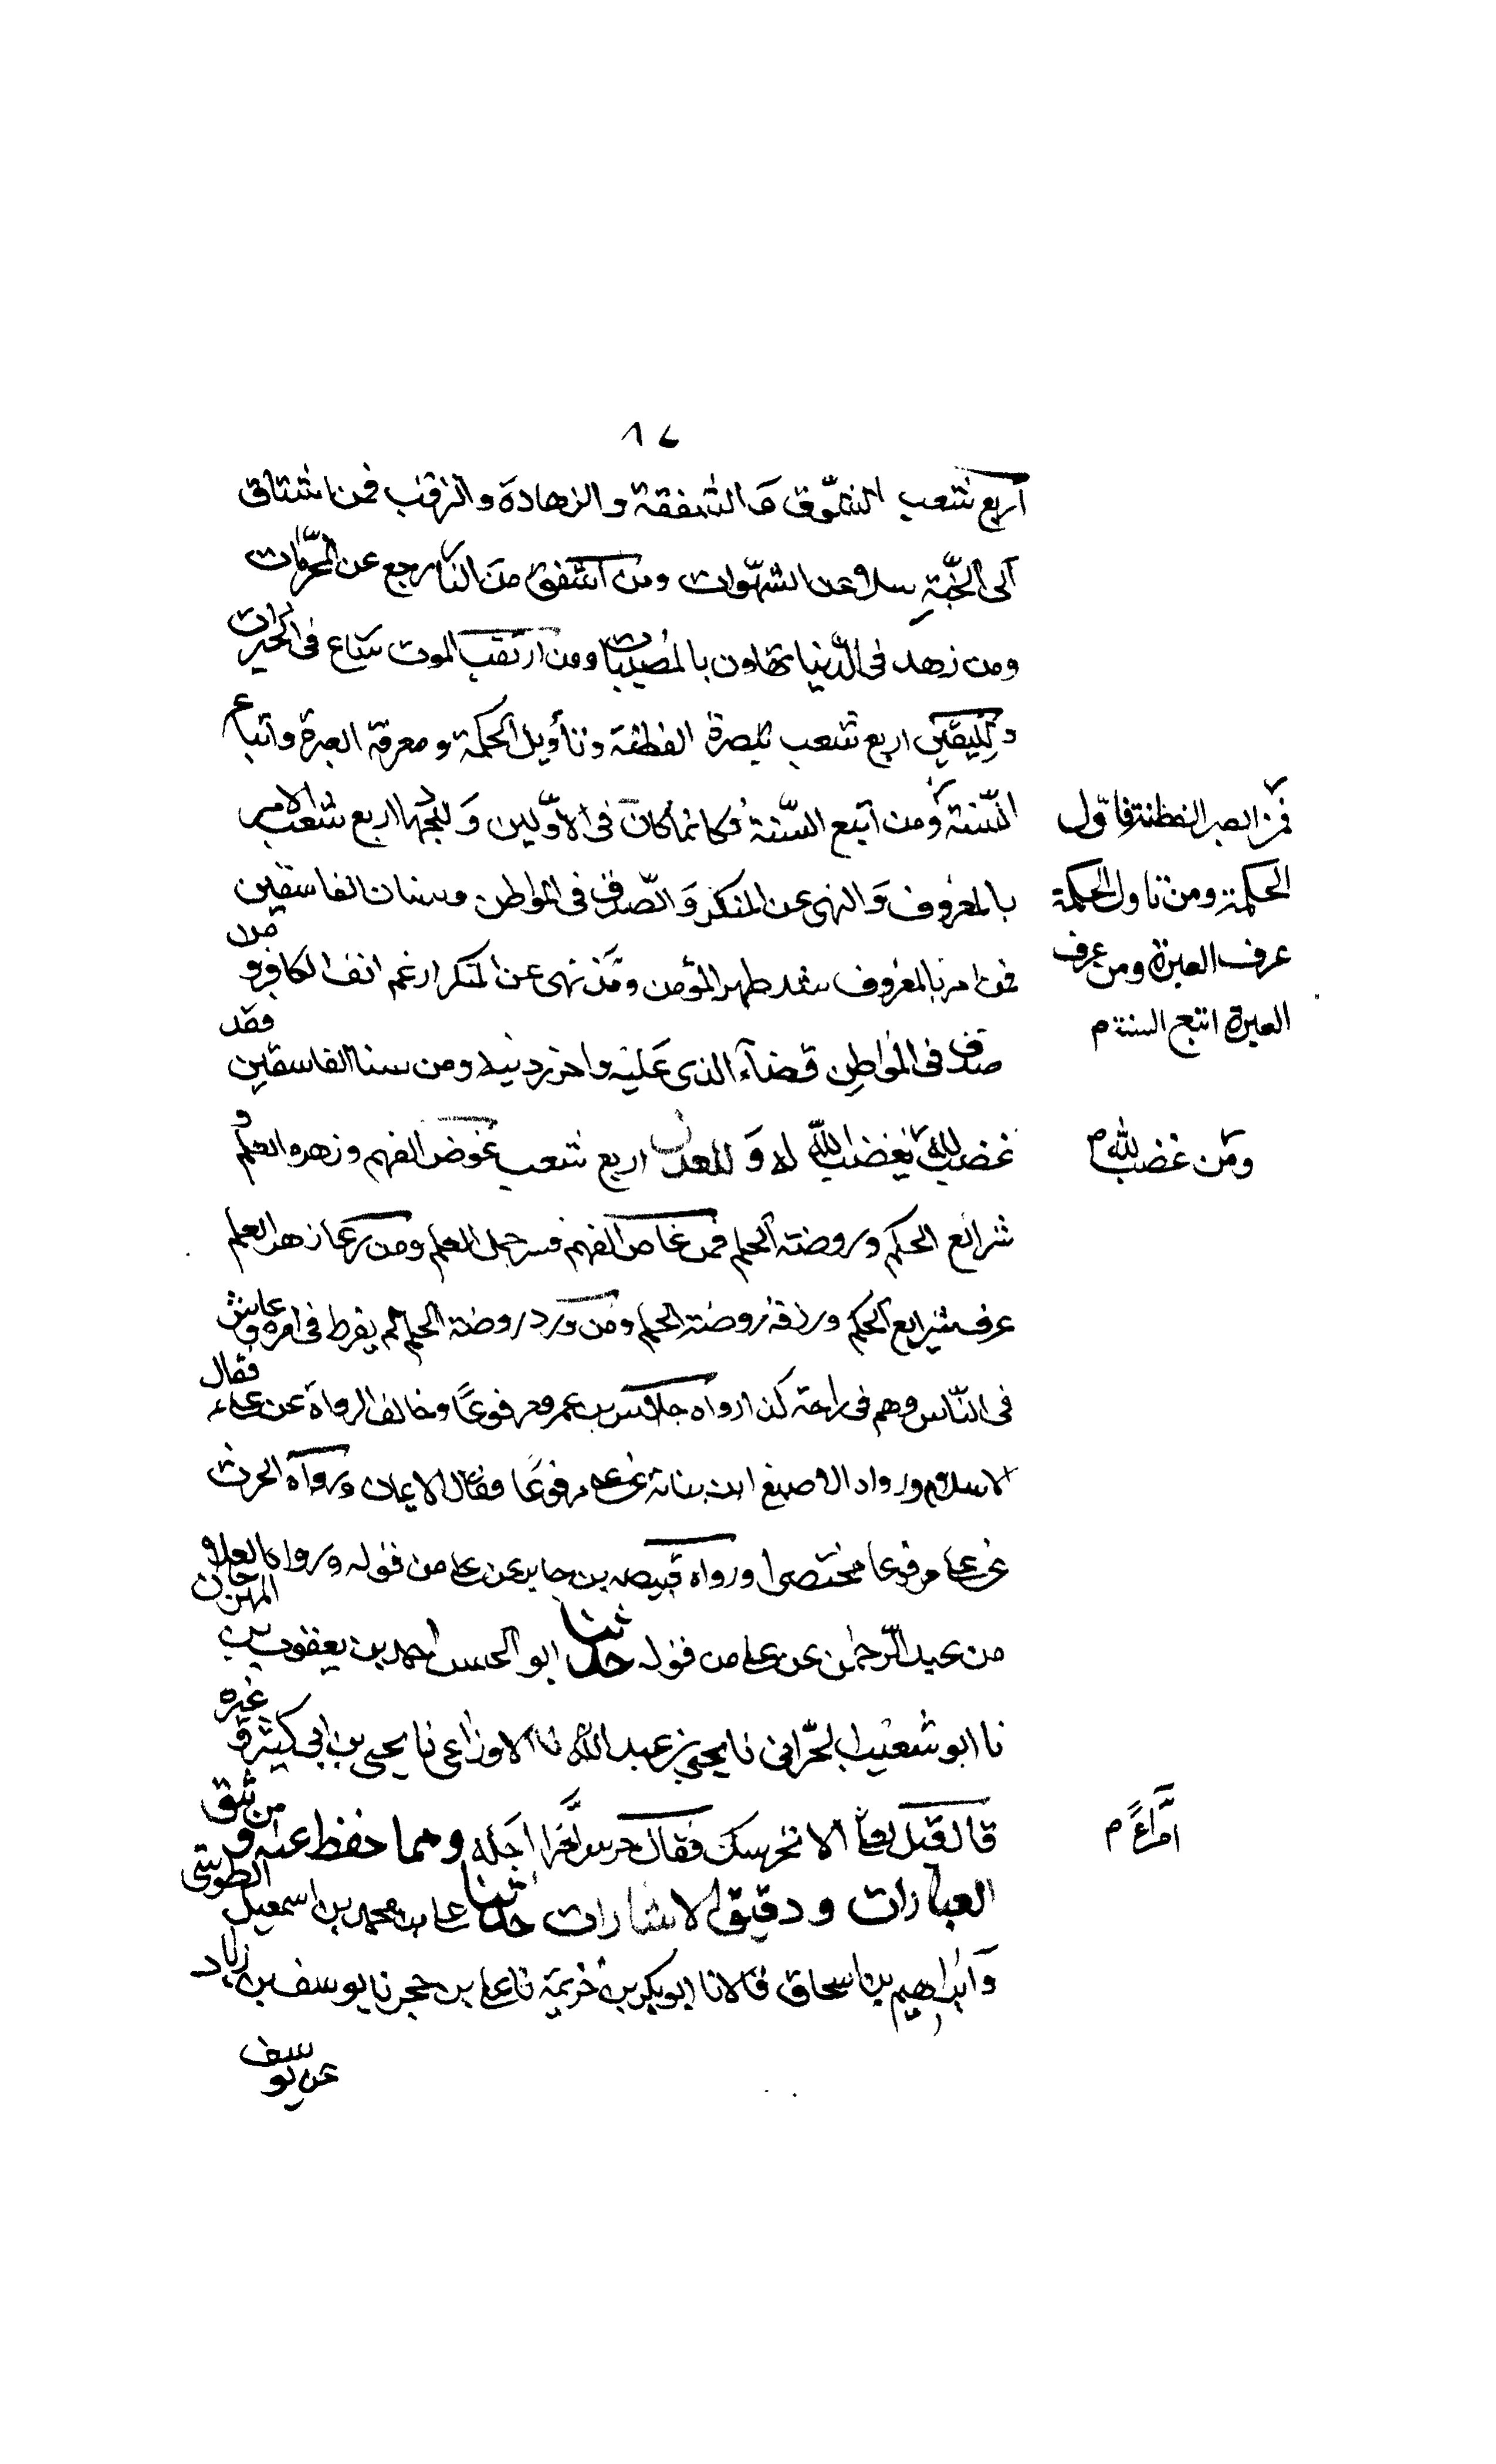 ٨٧
اربع شعب الشوق والشفقة والزهادة والترقب فمن اشتاق
الى الجنة سلا عن الشهوات ومن اشفق من النار رجع عن المحرمات
ومن زهد فى الدنيا تهاون بالمصيبات ومن ارتقب الموت سارع فى الخيرات
ولليقين اربع شعب تبصرة الفطنة وتأويل الحكمة ومعرفة العبرة واتباع
السنة ومن اتبع السنة فكانما كان فى الاولين وللجهاد اربع شعب الامر
بالمعروف والنهى عن المنكر والصدق فى المواطن وشنان الفاسقين
فمن امر بالمعروف شد ظهر المؤمن ومن نهى عن المنكر ارغم انف الكافر ومن
صدق فى المواطن قضا الذى عليه واحرز دينه ومن شنا الفاسقين فقد
غضب لله يغضب الله له وللعدل اربع شعب غوص الفهم وزهرة العلم و
شرائع الحكم وروضة الحلم فمن غاص الفهم فسر جمل العلم ومن رعا زهرة العلم
عرف شرايع الحكم ورد روضة الحلم ومن ورد روضة الحلم لم يفرط فى امره وعاش
فى الناس وهم فى راحة كذا رواه خلاس بن عمرو مرفوعا وخالف الرواة عن على فقال
الاسلام ورواه الاصبغ ابن نباتة عن على مرفوعا فقال الايمان ورواه الحرث
عن على مرفوعا مختصرا ورواه قبيصه بن جابر عن على من قوله ورواه العلاء
من عبد الرحمن عن على من قوله حدثنا ابو الحسن احمد بن يعقوب بن المهرجان
نا ابو شعيب الحرانى نا يحيى بن عبد الله نا الاوزاعى نا يحيى بن ابى كثير وغيره
قال قيل لعلى الا نحرسك فقال حرس امرأ اجله ومما حفظ عنه من وثيق
العبارات ودقيق الاشارات حدثنا على بن محمد بن اسمعيل الطوسى
وابراهيم بن اسحاق قالا نا ابو بكر بن خزيمة نا على بن حجر نا يوسف بن زياد
عن يوسف
فمن ابصر الفطنة تاول
الحكمة ومن تاول الحكمة
عرف العبرة ومن عرف
العبرة اتبع السنة م
ومن غضب لله م
امرأ م